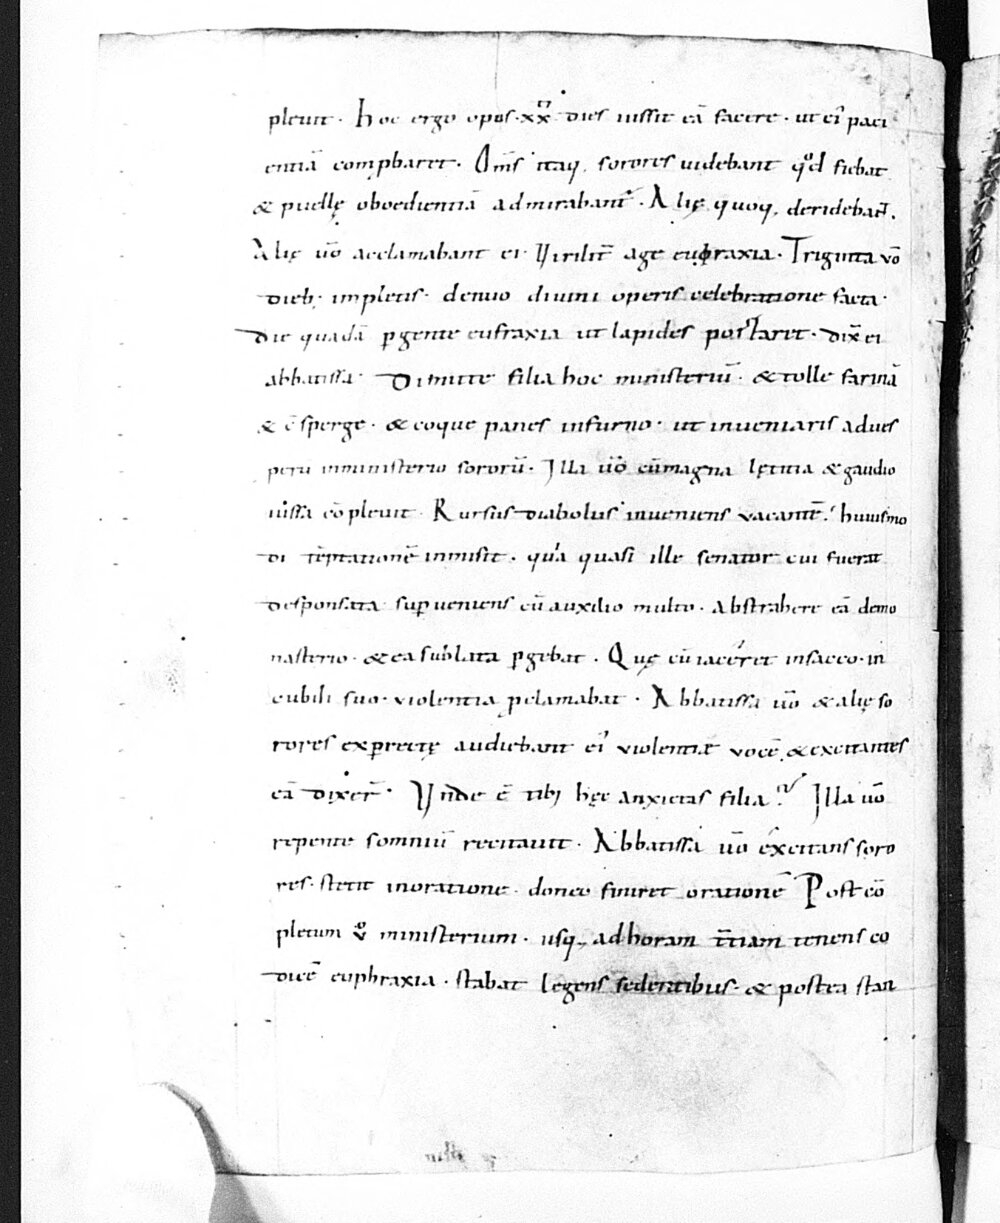 pleuit · Hoc ergo opus · xxx · dies iussit eā facere · ut ei᷒ paci
entiā comp̱baret · Om̅s itaq; sorores uidebant qͦd fiebat
& puellę oboedientiā admirabant᷑ · Alię quoq; deridebant.
Alię ū̊o acclamabant ei Virilit᷑ age eufraxia · Triginta v̊o
dieb; impletis · denuo diuini operis celebratione facta ·
Die quadā ꝑgente eufraxia ut lapides portaret · dix̄ ei
abbatissa · Dimitte filia hoc ministeriū · & tolle farinā
& c̄sperge · & coque panes in furno · ut inueniaris ad ues
perū in ministerio sororū · Illa ū̊o cū magna lętitia & gaudio
iussa cō pleuit · Rursus diabolus inueniens vacantē · huiusmo
di tēptationē inmisit · qͥa quasi ille senator cui fuerat
desponsata suꝑueniens cū auxilio multo · abstrahere eā de mo
nasterio · & ea sublata ꝑgebat · Quę cū iaceret in sacco · in
cubili suo · violentia ꝓclamabat · Abbatissa ū̊o & alię so
rores exꝑrectę audiebant ei᷒ violentiæ vocē & excitantes
eā dixer̄ · Vnde ē tibi hęc anxietas filia ? Illa ū̊o
repente somniū recitauit · Abbatissa ū̊o excitans soro
res · stetit in oratione · donec finiret orationē Post cō
pletum v̊ ministerium · usq; ad horam t̄tiam tenens co
dicē euphraxia · stabat legens sedentibus · & postea stan